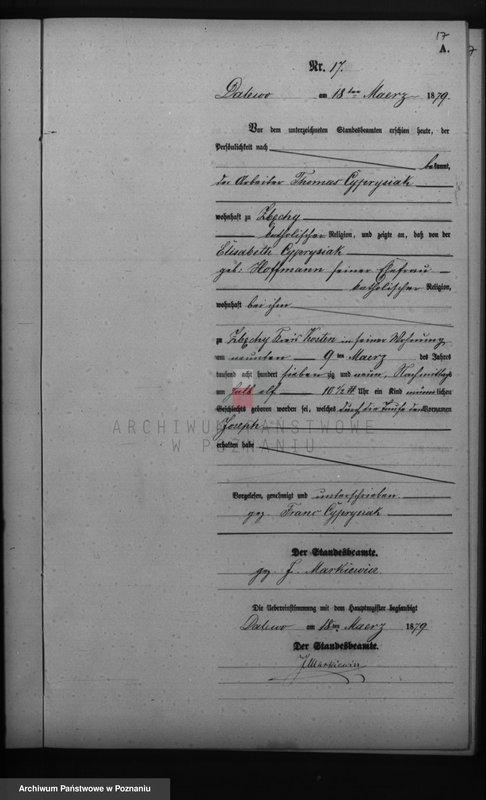 17
A.
Nr. 17.
Dalewo am 18ten Maerz 1879.
Vor dem unterzeichneten Standesbeamten erschien heute, der
Persönlichkeit nach
bekannt,
der Arbeiter Thomas Cyprysiak
wohnhaft zu Zbechy
katholischer Religion, und zeigte an, daß von der
Elisabeth Cyprysiak
geb: Hoffmann seiner Ehefrau
katholischer Religion,
wohnhaft bei ihm
zu Zbechy Kreis Kosten in seiner Wohnung
am neunten 9ten Maerz des Jahres
tausend acht hundert sieben zig und neun, Nachmittags
um halb elf 10 1/2 Uhr ein Kind männlichen
Geschlechts geboren worden sei, welches durch die Taufe den Vornamen
Joseph
erhalten habe
Vorgelesen, genehmigt und unterschrieben.
gez. Franc Cyprysiak
Der Standesbeamte.
gez. J. Markiewicz
Die Uebereinstimmung mit dem Hauptregister beglaubigt
Dalewo am 18ten Maerz 1879
Der Standesbeamte.
J. Markiewicz
ARCHIWUM PAŃSTWOWE
W POZNANIU
Archiwum Państwowe w Poznaniu